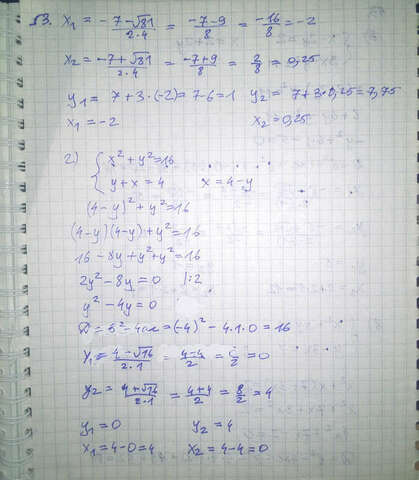 №3. x₁ = -7-√81/2·4 = -7-9/8 = -16/8 = -2
x₂ = -7+√81/2·4 = -7+9/8 = 2/8 = 0,25
y₁ = 7+3·(-2) = 7-6 = 1 y₂ = 7+3·0,25 = 7,75
x₁ = -2 x₂ = 0,25
2) { x² + y² = 16
y + x = 4 x = 4-y
(4-y)² + y² = 16
(4-y)(4-y) + y² = 16
16 - 8y + y² + y² = 16
2y² - 8y = 0 |:2
y² - 4y = 0
D = b² - 4ac = (-4)² - 4·1·0 = 16
y₁ = 4-√16/2·1 = 4-4/2 = 0/2 = 0
y₂ = 4+√16/2·1 = 4+4/2 = 8/2 = 4
y₁ = 0 y₂ = 4
x₁ = 4-0 = 4 x₂ = 4-4 = 0